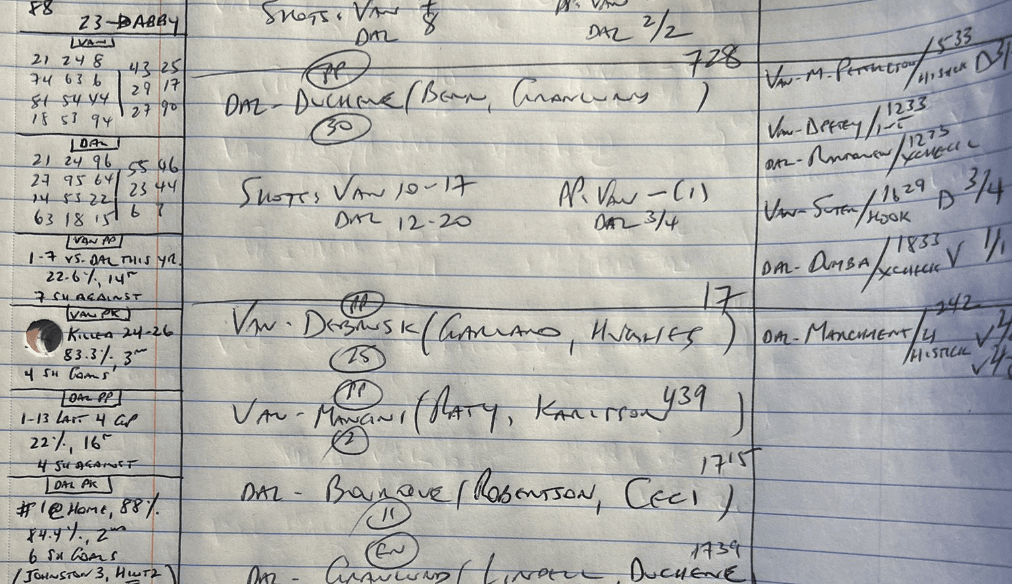 88
23-DABBY
VAN
21 24 8
74 63 6
81 54 44
18 53 94
43 25
29 17
27 90
DAL
21 24 96
27 95 64
14 55 22
63 18 15
55 46
23 44
6
VAN PP
1-7 VS. DAL THIS YR.
22.6%, 14TH
7 SH AGAINST
VAN PK
KILLED 24-26
83.3%, 3RD
4 SH GOALS
DAL PP
1-13 LAST 4 GP
22%, 16TH
4 SH AGAINST
DAL PK
#1@HOME, 88%
84.4%, 2ND
6 SH GOALS
(JOHNSTON 3, HINTZ
SHOTS: VAN 8
DAL
PP. VAN
DAL 2/2
PP
728
DAL-DUCHENE (BENN, GRANLUND)
30
SHOTS: VAN 10-17
DAL 12-20
PP. VAN-(1)
DAL 3/4
PP
17
VAN-DEBRUSK (GARLAND, HUGHES)
25
PP
439
VAN-MANCINI (RATY, KARLSSON)
2
1715
DAL-BOURQUE (ROBERTSON, CECI)
11
EN
1739
DAL-GRANLUND (LINDELL, DUCHENE
VAN-M. PETTERSSON/533
HISTICK D 3/
VAN-/1233
DAL-RANTANEN/1275
XCHECK
VAN-SUTER/1629
HOOK D 3/4
DAL-DUMBA/1833
XCHECK V 1/1
DAL-MARCHMENT/242
HISTICK